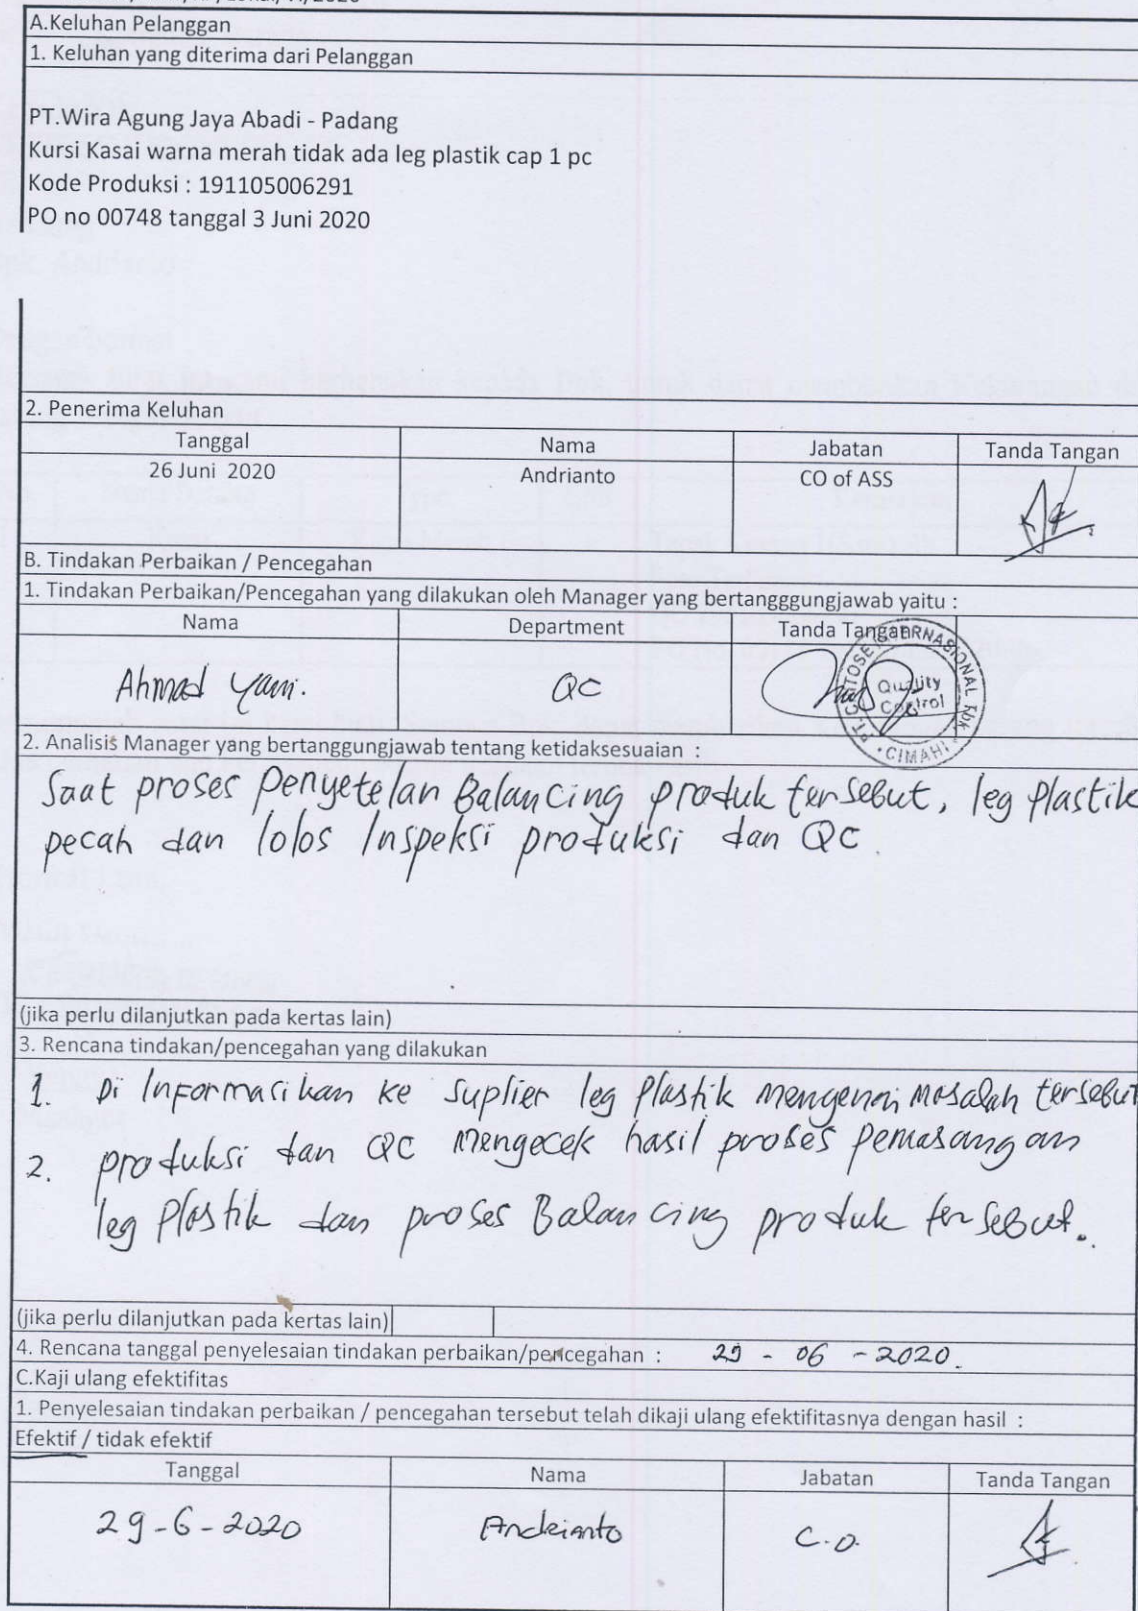 A.Keluhan Pelanggan
1. Keluhan yang diterima dari Pelanggan
PT.Wira Agung Jaya Abadi - Padang
Kursi Kasai warna merah tidak ada leg plastik cap 1 pc
Kode Produksi : 191105006291
PO no 00748 tanggal 3 Juni 2020
2. Penerima Keluhan
Tanggal Nama Jabatan Tanda Tangan
26 Juni 2020 Andrianto CO of ASS
B. Tindakan Perbaikan / Pencegahan
1. Tindakan Perbaikan/Pencegahan yang dilakukan oleh Manager yang bertangggungjawab yaitu :
Nama Department Tanda Tangan
Ahmad Yani. QC
PT. CHITOSE INTERNASIONAL Tbk
Quality
Control
CIMAHI
2. Analisis Manager yang bertanggungjawab tentang ketidaksesuaian :
Saat proses penyetelan Balancing produk tersebut, leg plastik
pecah dan lolos Inspeksi produksi dan QC.
(jika perlu dilanjutkan pada kertas lain)
3. Rencana tindakan/pencegahan yang dilakukan
1. Di Informasikan ke Suplier leg Plastik mengenai masalah tersebut
2. produksi dan QC mengecek hasil proses pemasangan
leg Plastik dan proses Balancing produk tersebut..
(jika perlu dilanjutkan pada kertas lain)
4. Rencana tanggal penyelesaian tindakan perbaikan/pencegahan : 29 - 06 - 2020.
C.Kaji ulang efektifitas
1. Penyelesaian tindakan perbaikan / pencegahan tersebut telah dikaji ulang efektifitasnya dengan hasil :
Efektif / tidak efektif
Tanggal Nama Jabatan Tanda Tangan
29-6-2020 Andrianto C.O.